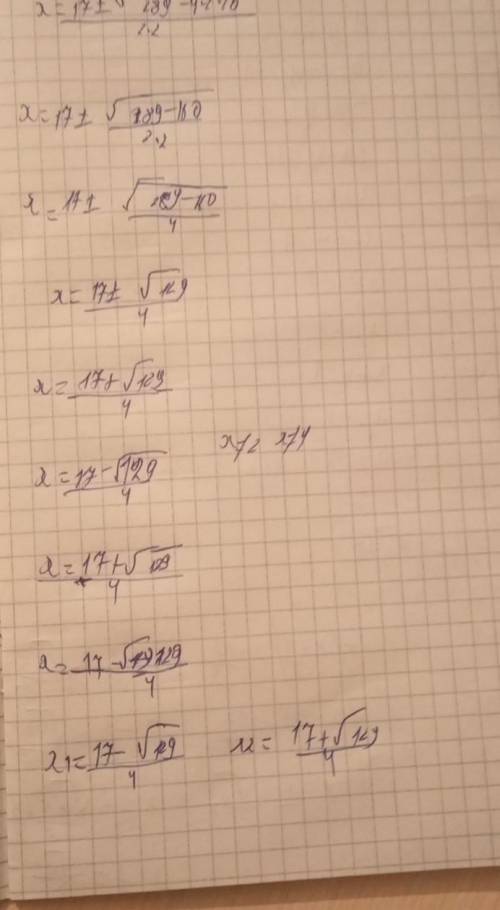 x = 17 ± √289 - 4·2·10 / 2·2
x = 17 ± √289 - 160 / 2·2
x = 17 ± √289 - 160 / 4
x = 17 ± √129 / 4
x = 17 + √129 / 4
x = 17 - √129 / 4 x≠2 x≠4
x = 17 + √129 / 4
x = 17 - √129 / 4
x1 = 17 - √129 / 4 x2 = 17 + √129 / 4